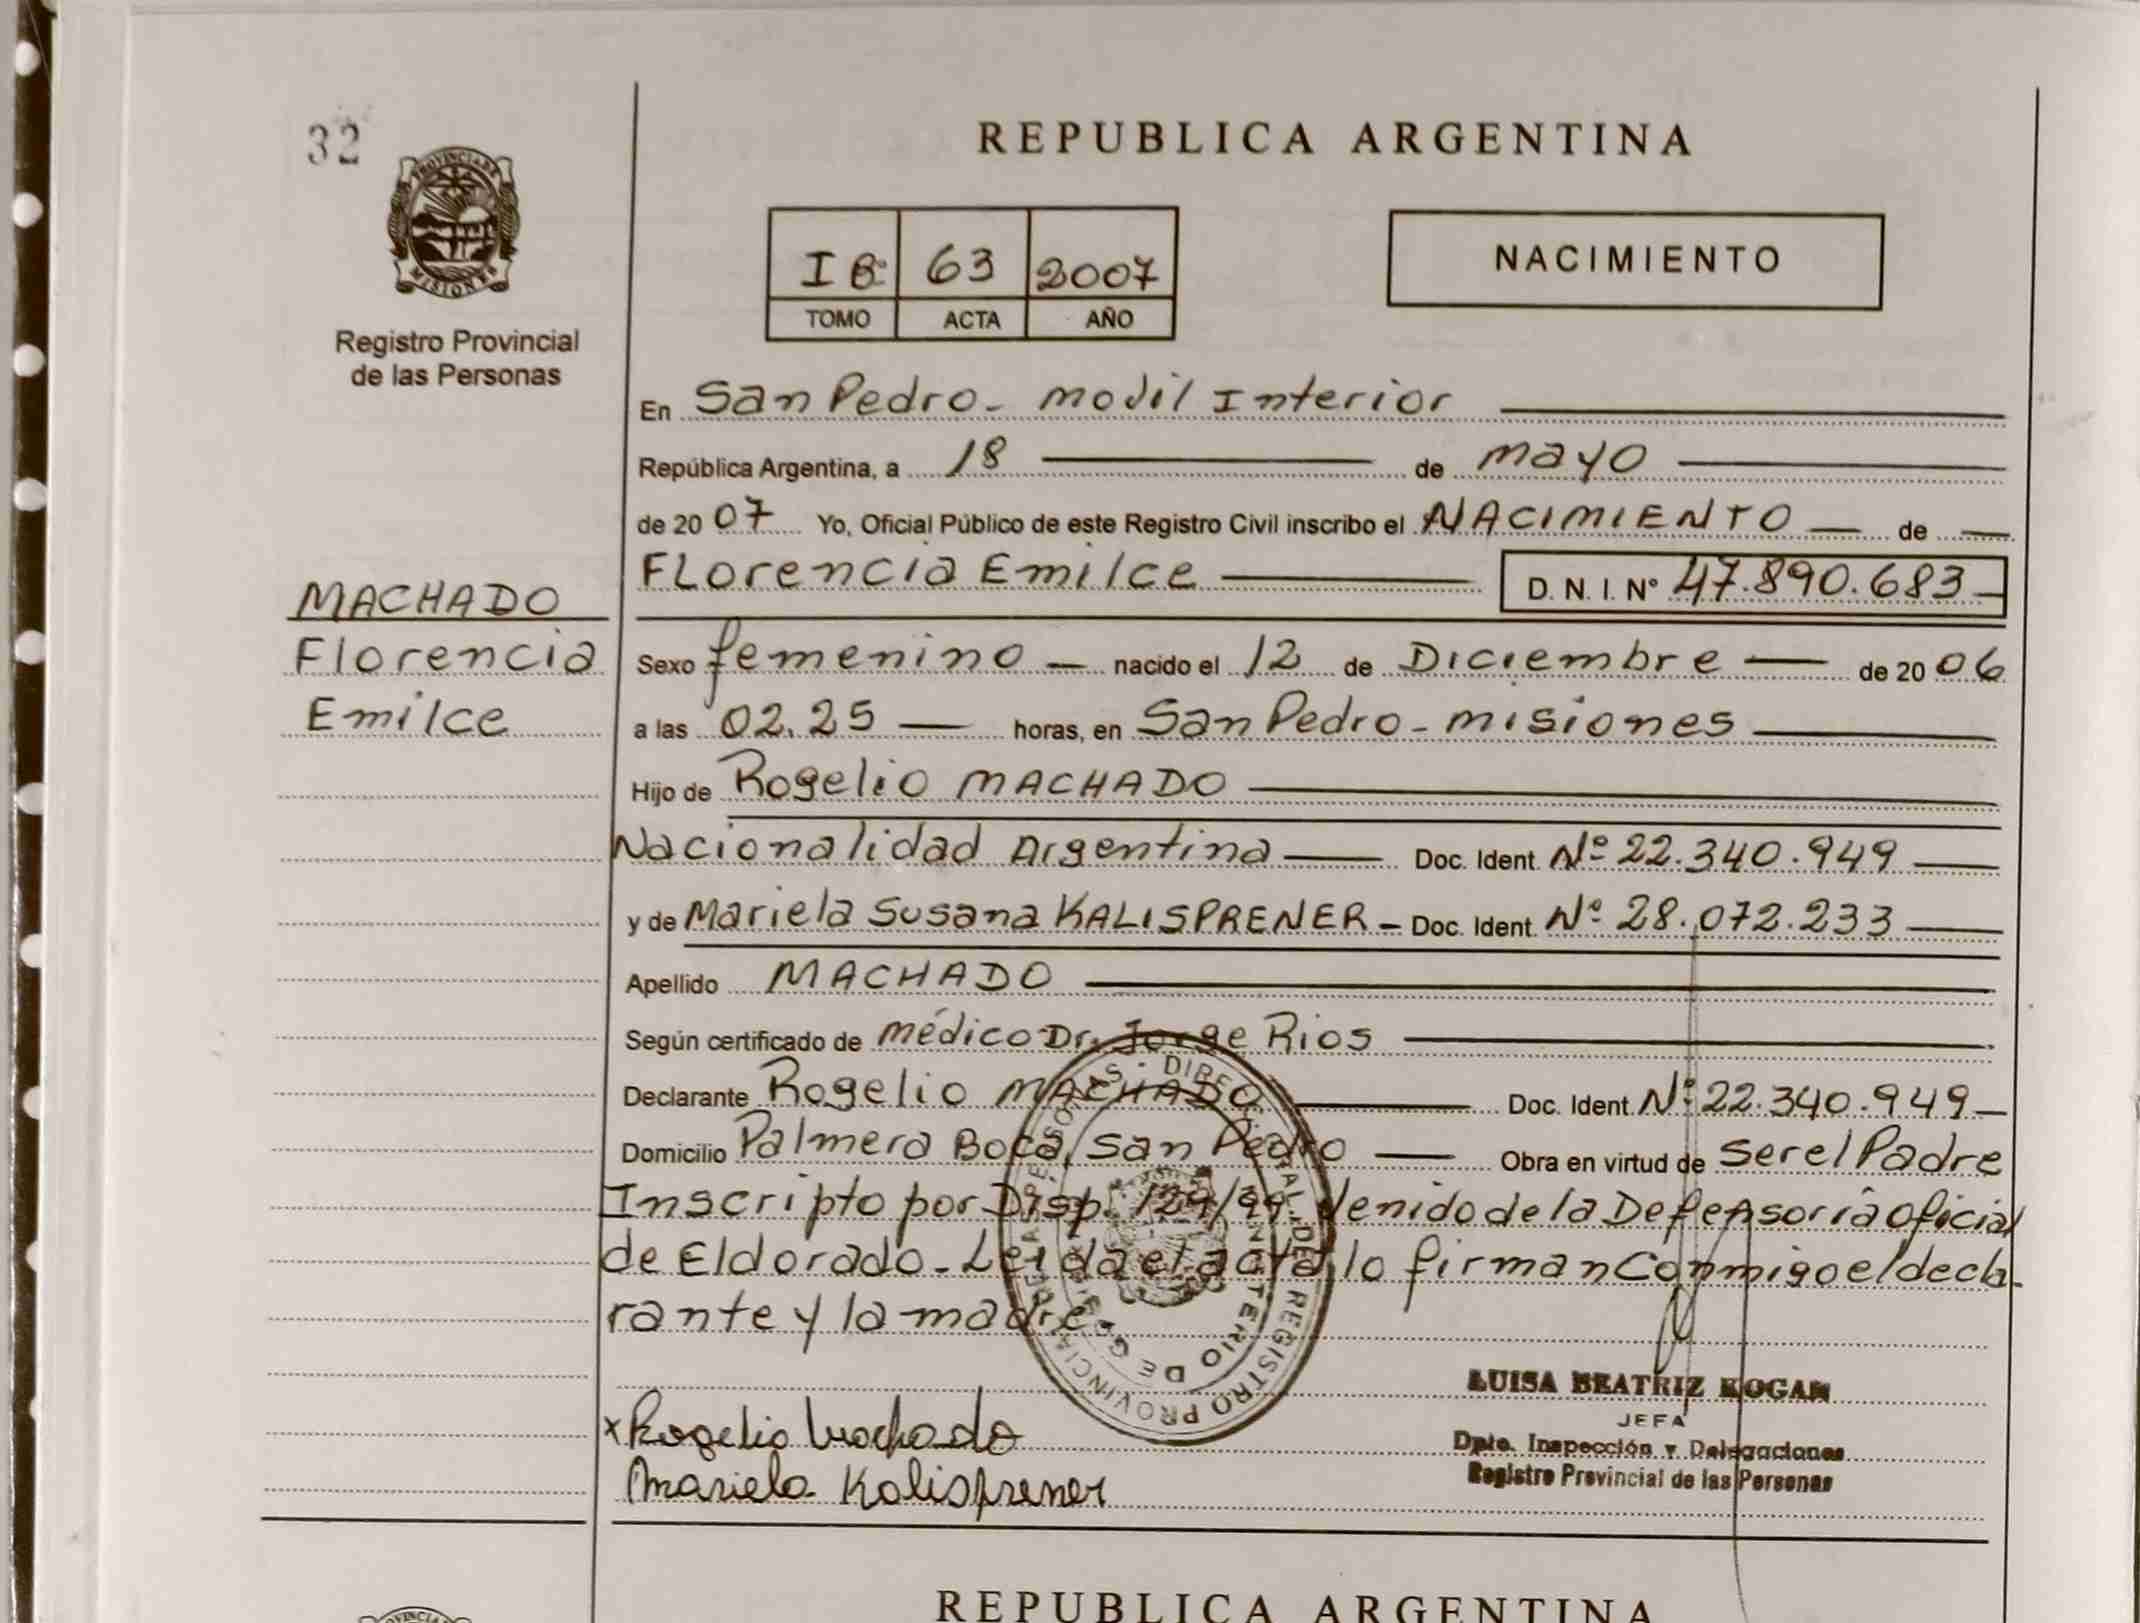 32
PROVINCIA DE
MISIONES
Registro Provincial
de las Personas
MACHADO
Florencia
Emilce
REPUBLICA ARGENTINA
I Bº 63 2007
TOMO ACTA AÑO
NACIMIENTO
En San Pedro - movil Interior
República Argentina, a 18 de mayo
de 20 07 Yo, Oficial Público de este Registro Civil inscribo el NACIMIENTO de
FLorencia Emilce D. N. I. Nº 47.890.683
Sexo femenino nacido el 12 de Diciembre de 20 06
a las 02.25 horas, en San Pedro - misiones
Hijo de Rogelio MACHADO
Nacionalidad Argentina Doc. Ident. Nº 22.340.949
y de Mariela Susana KALISPRENER - Doc. Ident. Nº 28.072.233
Apellido MACHADO
Según certificado de médico Dr. Jorge Rios
Declarante Rogelio MACHADO Doc. Ident. Nº 22.340.949
Domicilio Palmera Boca, San Pedro Obra en virtud de ser el Padre
Inscripto por Disp. 129/99. Venido de la Defensoría oficial
de Eldorado. Leida el acta, lo firman Conmigo el decla-
rante y la madre.
LUISA BEATRIZ KOGAN
JEFA
Dpto. Inspección y Delegaciones
Registro Provincial de las Personas
x Rogelio Machado
Mariela Kalisprener
REGISTRO PROVINCIAL DE
REPUBLICA ARGENTINA